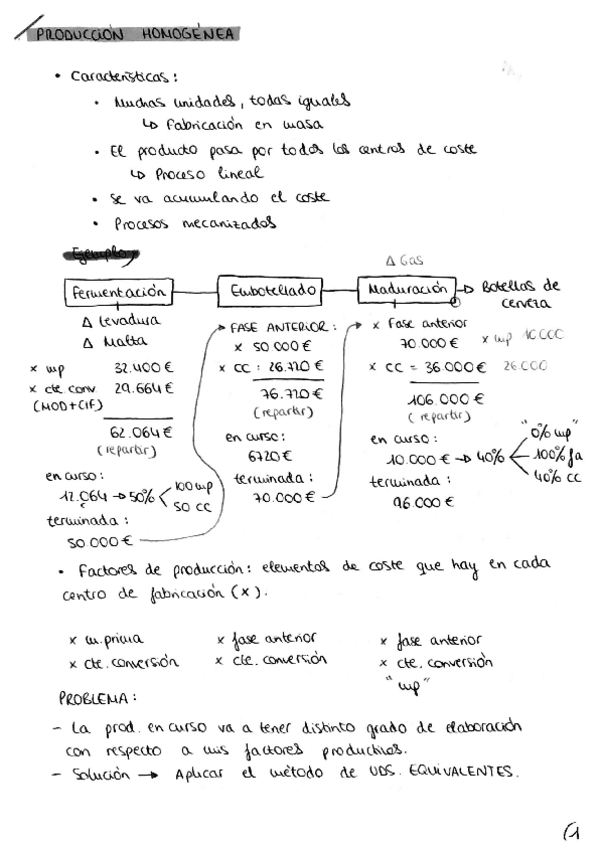 PRODUCCIÓN HOMOGÉNEA
• Características:
• Muchas unidades, todas iguales
↳ Fabricación en masa
• El producto pasa por todos los centros de coste
↳ Proceso lineal
• Se va acumulando el coste
• Procesos mecanizados
Ejemplo
Δ Gas
Fermentación
Embotellado
Maduración → Botellas de
cerveza
Δ Levadura
Δ Malta
x mp 32.400 €
x cte conv 29.664 €
(MOD+CIF)
62.064 €
(repartir)
en curso:
12.064 → 50% < 100 mp
50 CC
terminada:
50.000 €
→ FASE ANTERIOR:
x 50.000 €
x CC: 26.720 €
76.720 €
(repartir)
en curso:
6720 €
terminada:
70.000 €
x Fase anterior
70.000 € x mp 10.000
x CC = 36.000 € 26.000
106.000 €
(repartir)
en curso: "0% mp"
10.000 € → 40% < 100% fa
40% CC
terminada:
96.000 €
• Factores de producción: elementos de coste que hay en cada
centro de fabricación (x).
x m. prima x fase anterior x fase anterior
x cte. conversión x cte. conversión x cte. conversión
"mp"
PROBLEMA:
- La prod. en curso va a tener distinto grado de elaboración
con respecto a mis factores productivos.
- Solución → Aplicar el método de UDS. EQUIVALENTES.